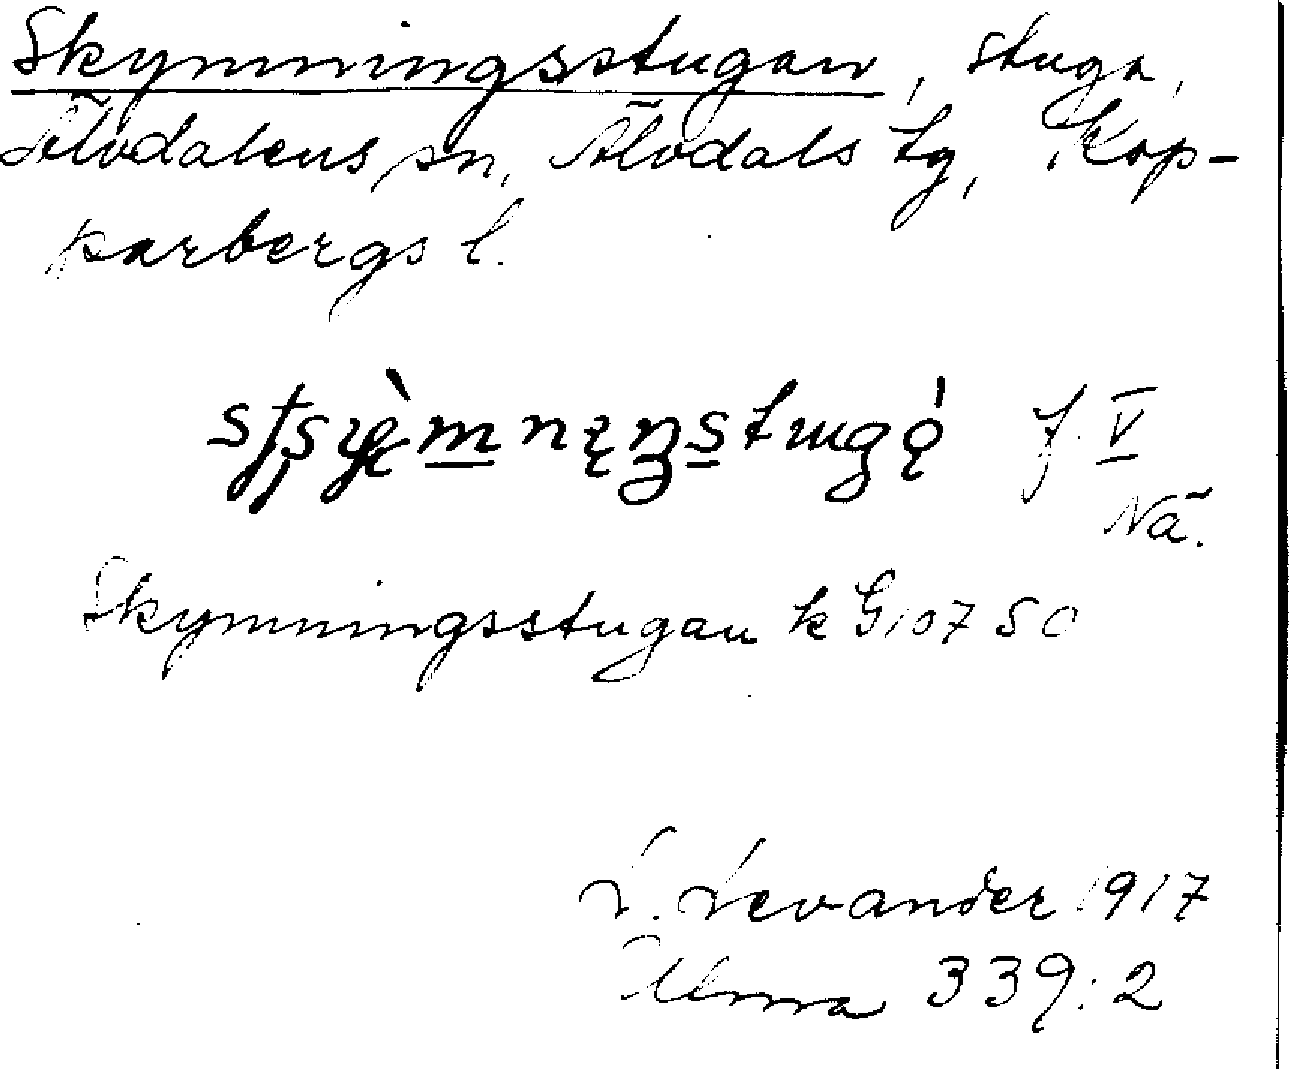 Skymningsstugan, stuga,
Älvdalens sn, Älvdals tg, Kop-
parbergs l.
f. V
Nä.
Skymningsstugan k G 107 SO
L. Levander 1917
Ulma 339:2